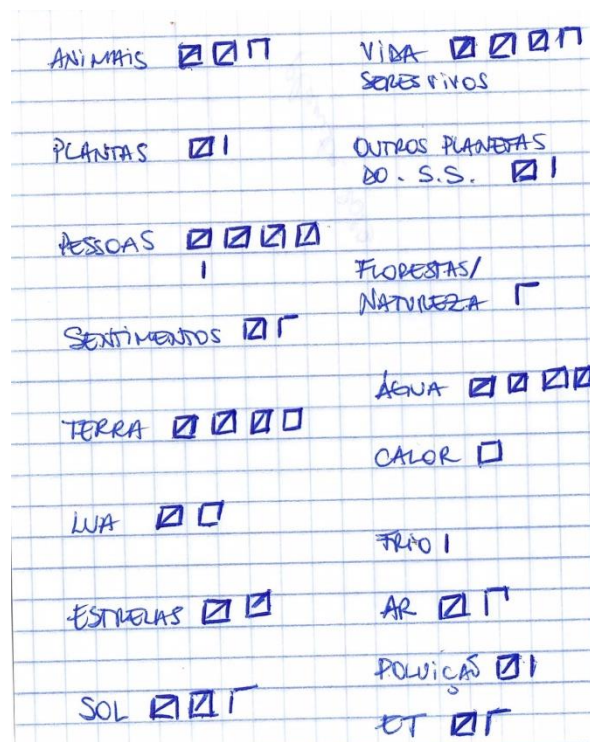 ANIMAIS
PLANTAS
PESSOAS
SENTIMENTOS
TERRA
LUA
ESTRELAS
SOL
VIDA
SERES VIVOS
OUTROS PLANETAS
DO. S.S.
FLORESTAS/
NATUREZA
ÁGUA
CALOR
FRIO
AR
POLUIÇÃO
ET